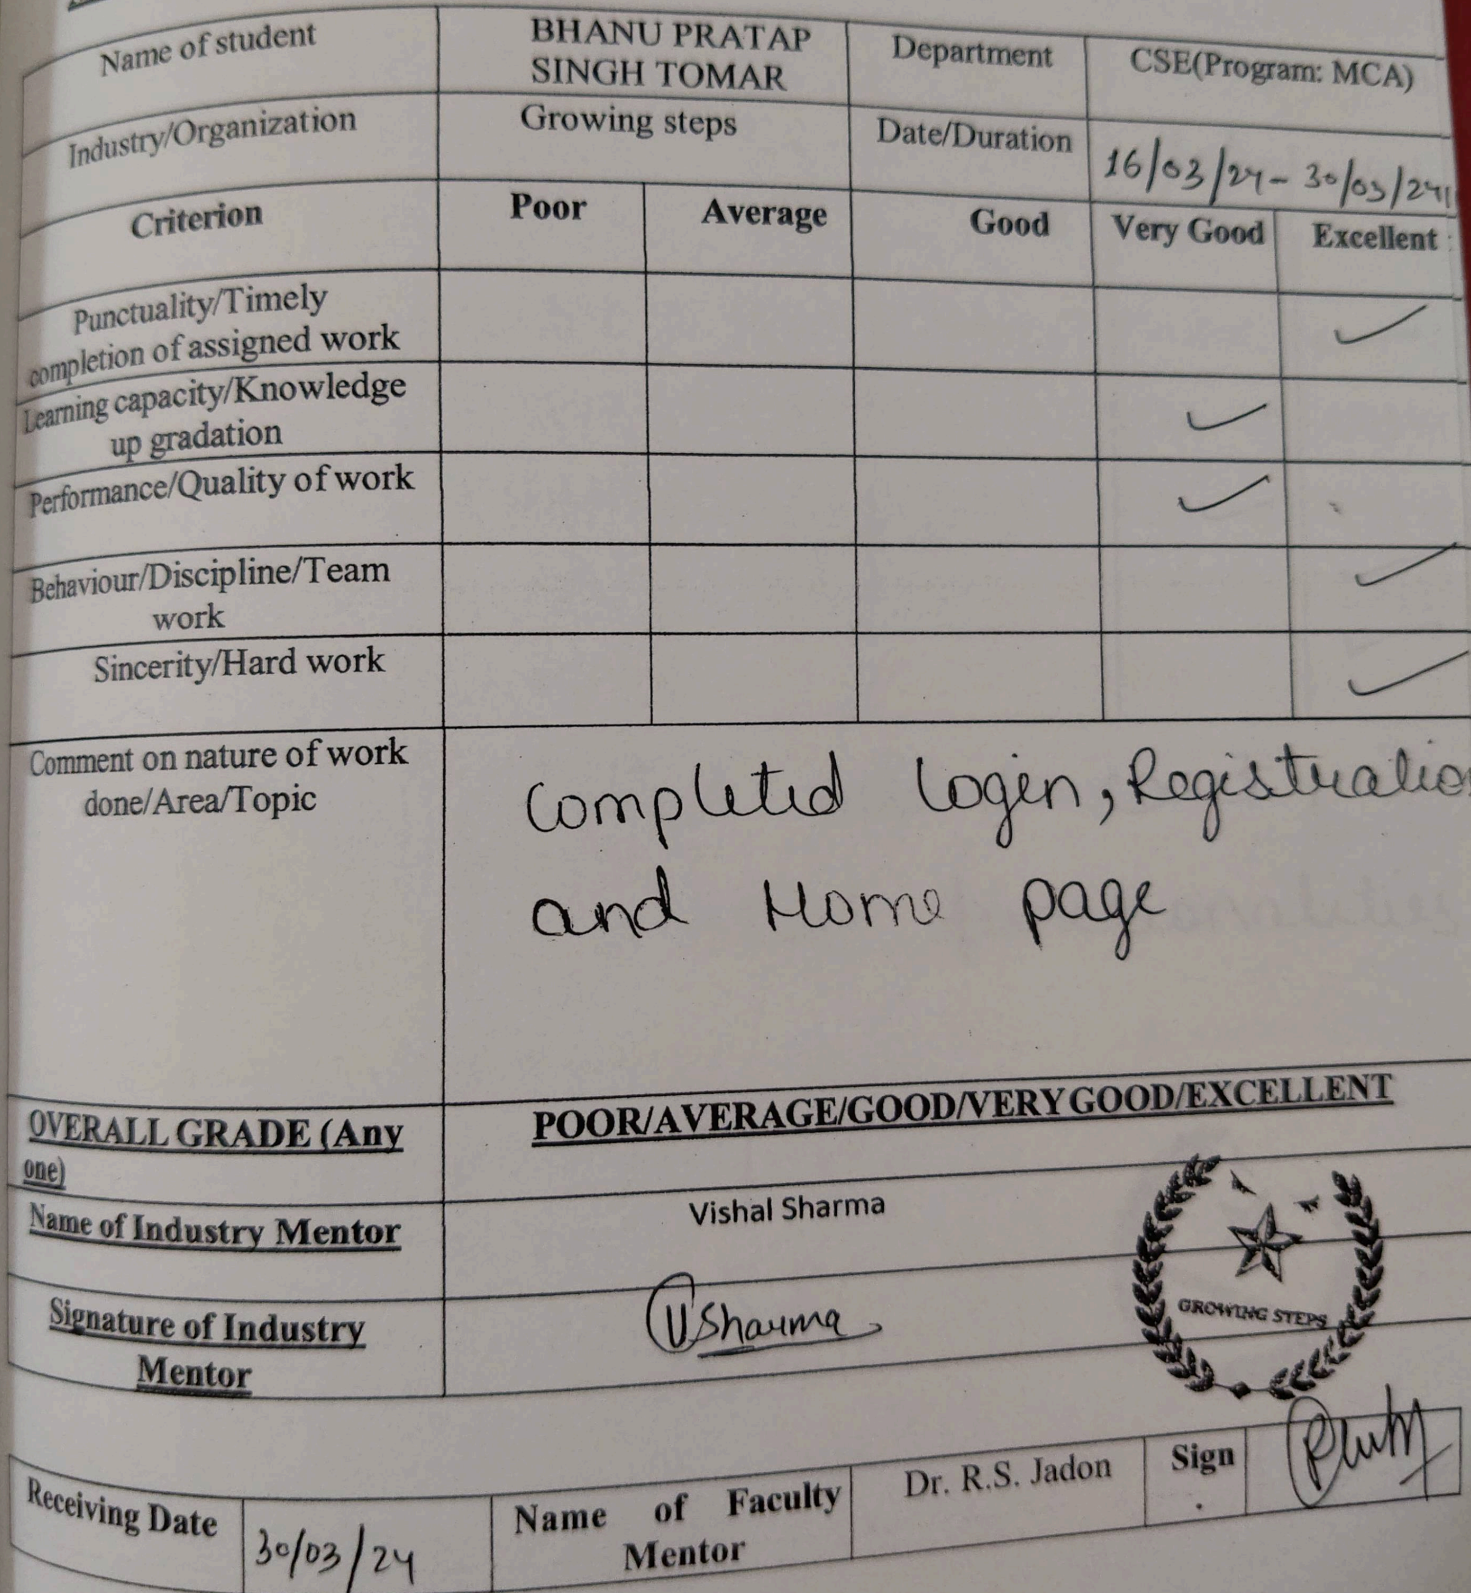 Name of student BHANU PRATAP SINGH TOMAR Department CSE(Program: MCA)
Industry/Organization Growing steps Date/Duration 16/03/24 - 30/03/24
Criterion Poor Average Good Very Good Excellent
Punctuality/Timely
completion of assigned work ✓
Learning capacity/Knowledge
up gradation ✓
Performance/Quality of work ✓
Behaviour/Discipline/Team
work ✓
Sincerity/Hard work ✓
Comment on nature of work
done/Area/Topic
Completed login, Registratio
and Home page
OVERALL GRADE (Any
one)
POOR/AVERAGE/GOOD/VERY GOOD/EXCELLENT
Name of Industry Mentor Vishal Sharma
GROWING STEPS
Signature of Industry
Mentor
VSharma
Receiving Date 30/03/24
Name of Faculty
Mentor
Dr. R.S. Jadon Sign